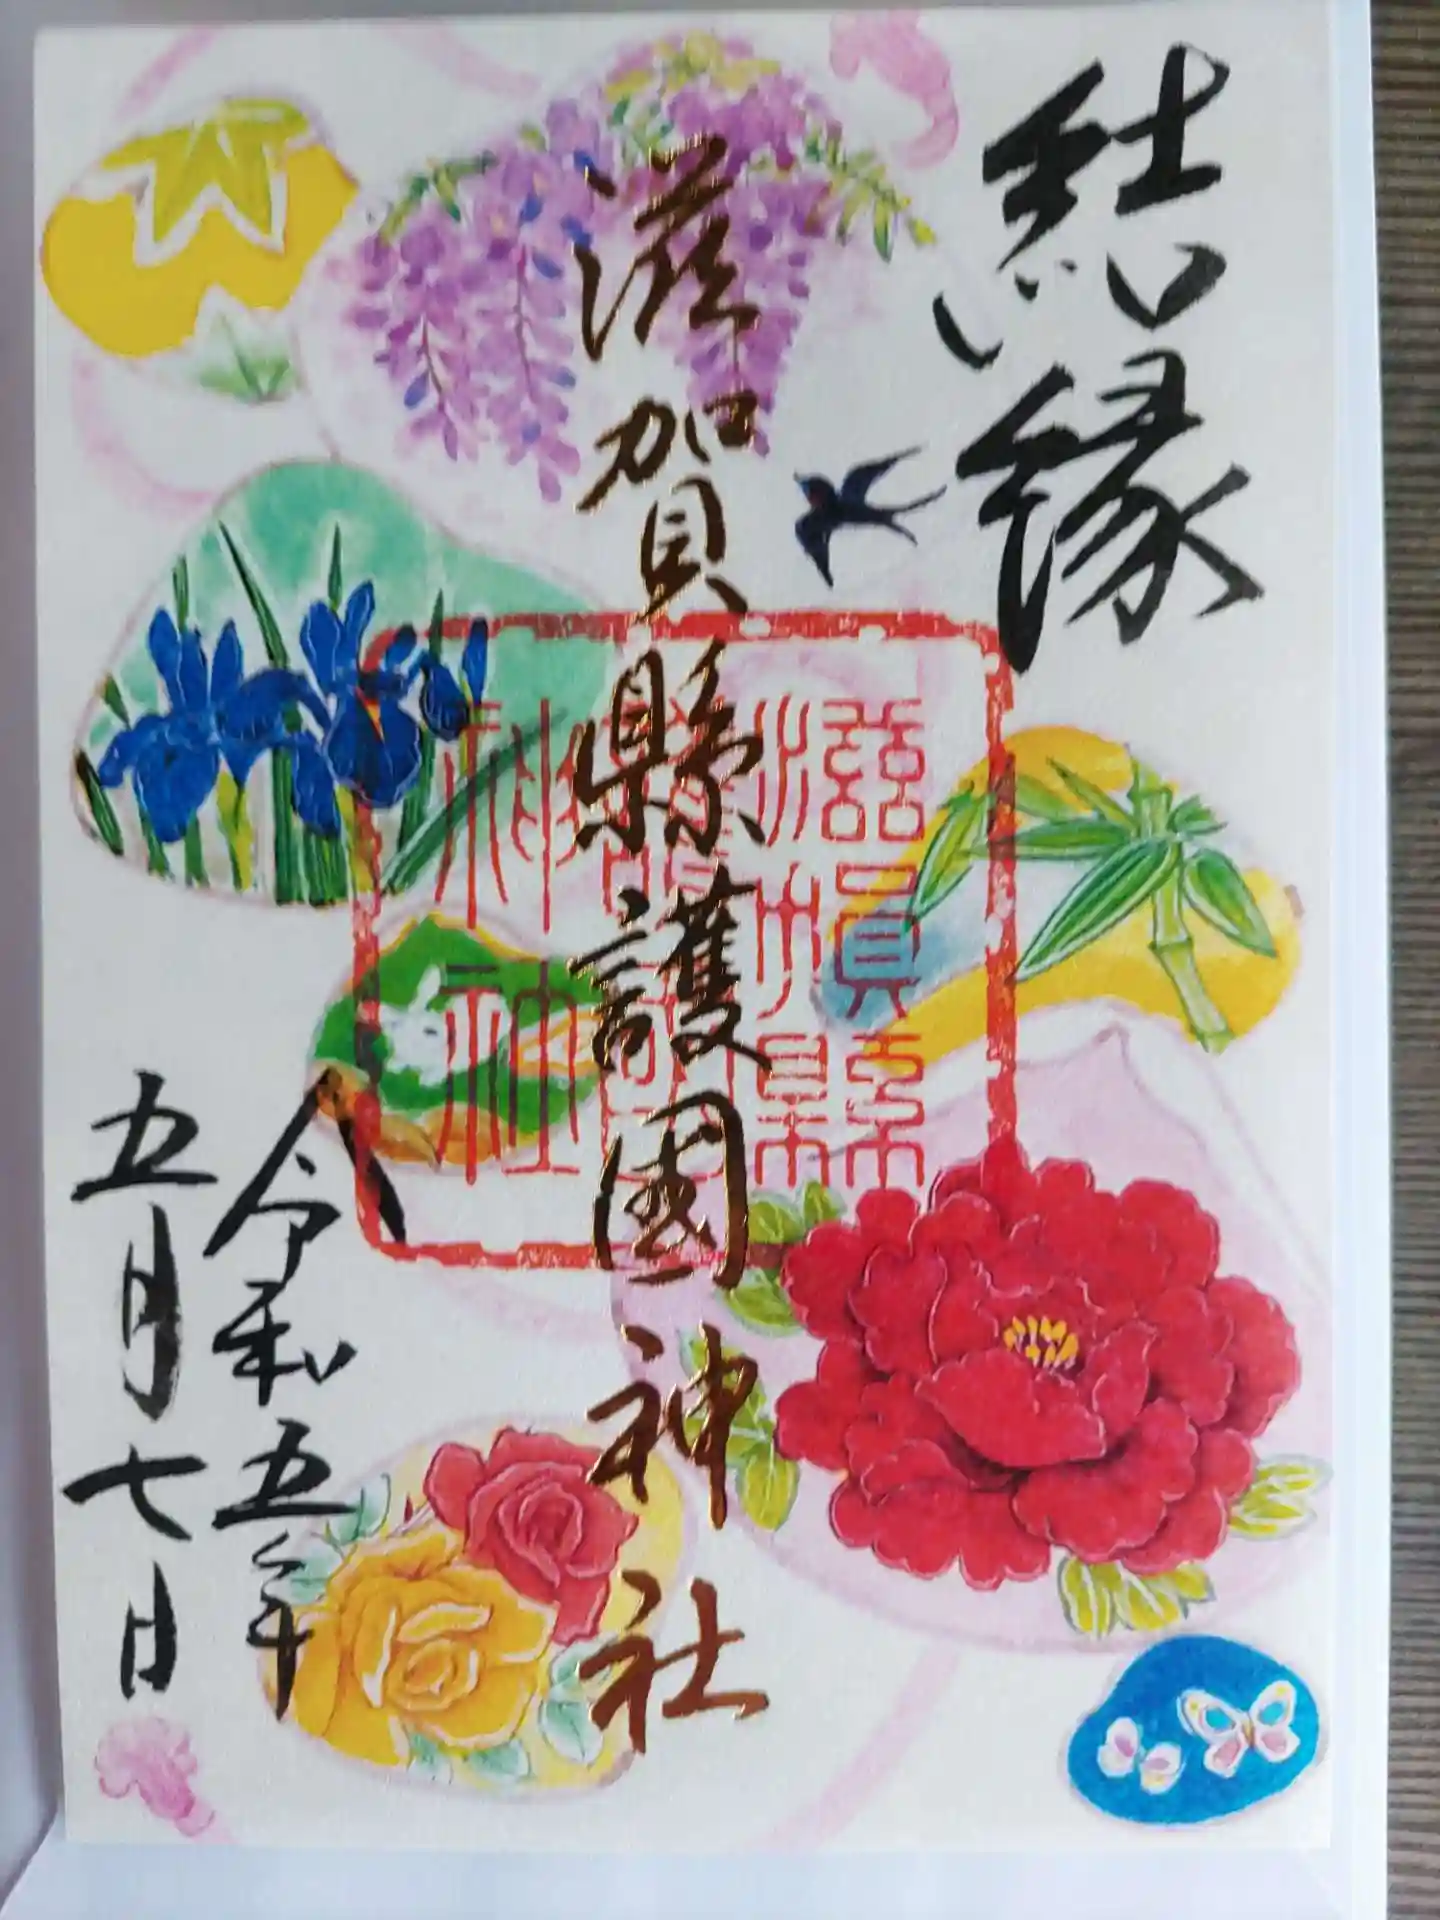 結縁
滋賀縣護國神社
滋賀縣
護國
神社
令和五年
五月七日